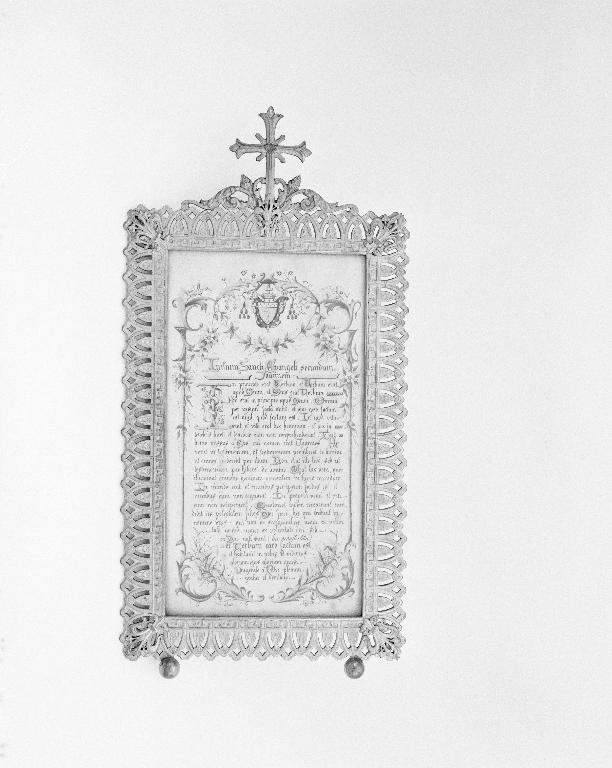 Initium Sancti Evangeli secundum
Joannem
In principio erat Verbum et Verbum erat
apud Deum, et Deus erat Verbum
Hoc erat in principio apud Deum. Omnia
per ipsum facta sunt et sine ipso factum
est nihil quod factum est. In ipso vita
erat et vita erat lux hominum et lux in
et tenebrae eam non comprehenderunt. Fuit
homo missus a Deo cui nomen erat Joannes
venit in testimonium, ut testimonium perhiberet de lumine
ut omnes crederent per illum. Non erat ille lux sed ut
testimonium perhiberet de lumine. Erat lux vera, quae
illuminat omnem hominem venientem in hunc mundum
In mundo erat et mundus per ipsum factus est et
mundus eum non cognovit. In propria venit et sui
eum non receperunt. Quotquot autem receperunt eum
dedit eis potestatem filios Dei fieri his qui credunt in
nomine ejus qui non ex sanguinibus neque ex
neque ex voluntate viri sed
ex Deo nati sunt
Et Verbum caro factum est
et habitavit in nobis et vidimus
gloriam ejus gloriam quasi
Unigeniti a Patre plenum
gratiae et veritatis